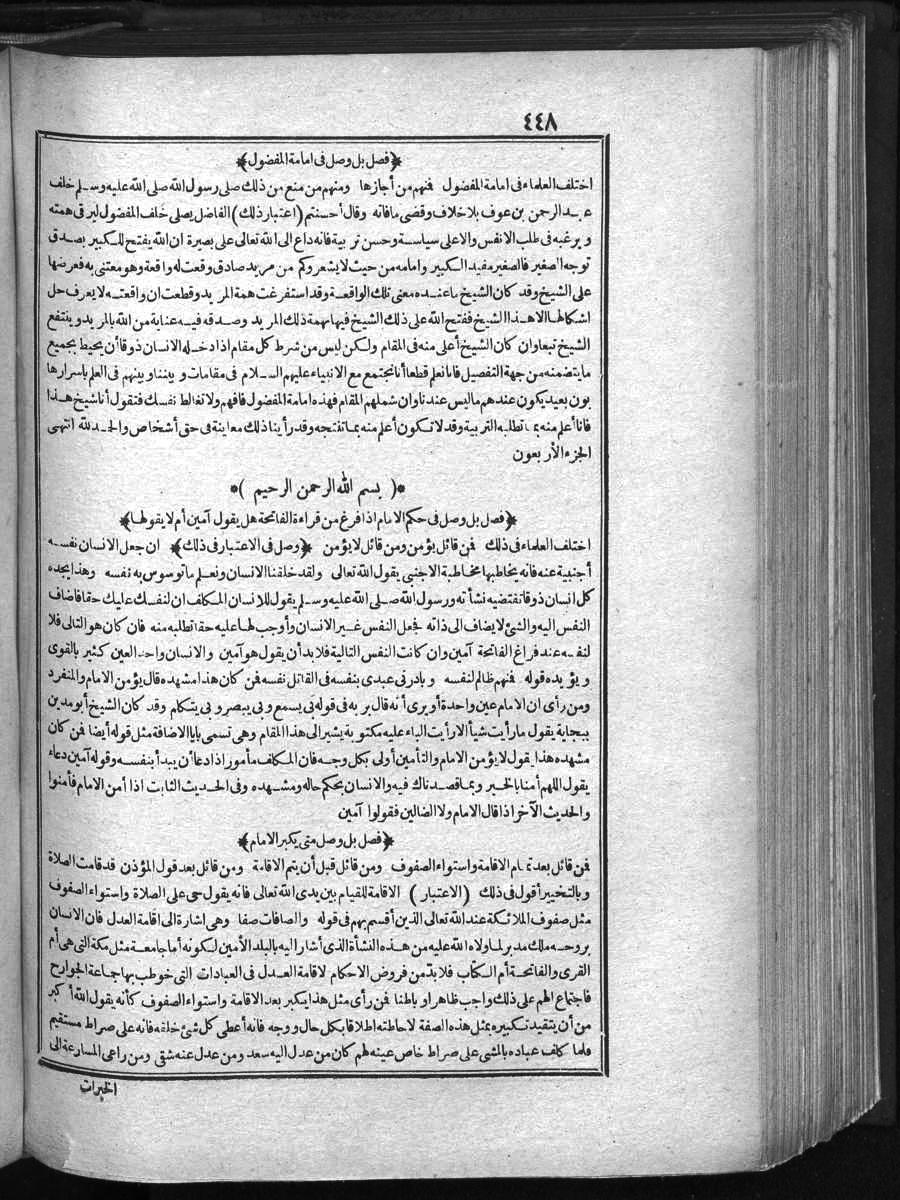 ٤٤٨
﴿فصل بل وصل فى امامة المفضول﴾
اختلف العلماء فى امامة المفضول فمنهم من أجازها ومنهم من منع من ذلك صلى رسول الله صلى الله عليه وسلم خلف
عبد الرحمن بن عوف بلا خلاف وقضى ما فاته وقال أحسنتم (اعتبار ذلك) الفاضل يصلى خلف المفضول ليرقى همته
ويرغبه فى طلب الانفس والاعلى سياسة وحسن تربية فانه داع الى الله تعالى على بصيرة ان الله يفتح للكبير بصدق
توجه الصغير فالصغير مفيد الكبير وامامه من حيث لا يشعر وكم من مريد صادق وقعت له واقعة وهو معتنى به فعرضها
على الشيخ وقد كان الشيخ ما عنده معنى تلك الواقعة وقد استفرغت همة المريد وقطعت ان واقعته لا يعرف حل
اشكالها الا هذا الشيخ ففتح الله على ذلك الشيخ فيها بهمة ذلك المريد وصدقه فيه عناية من الله بالمريد وينتفع
الشيخ تبعا وان كان الشيخ أعلى منه فى المقام ولكن ليس من شرط كل مقام اذا دخله الانسان ذوقا أن يحيط بجميع
ما يتضمنه من جهة التفصيل فانا نعلم قطعا أنا نجتمع مع الانبياء عليهم السلام فى مقامات وبيننا وبينهم فى العلم باسرارها
بون بعيد يكون عندهم ما ليس عندنا وان شملهم المقام فهذه امامة المفضول فافهم ولا تغالط نفسك فتقول أنا شيخ هذا
فانا أعلم منه بما تطلبه التربية وقد لا تكون أعلم منه بما تنتجه وقد رأينا ذلك معاينة فى حق أشخاص والحمد لله انتهى
الجزء الأربعون
*( بسم الله الرحمن الرحيم )*
﴿فصل بل وصل فى حكم الامام اذا فرغ من قراءة الفاتحة هل يقول آمين أم لا يقولها﴾
اختلف العلماء فى ذلك فمن قائل يؤمن ومن قائل لا يؤمن ﴿وصل فى الاعتبار فى ذلك﴾ ان جعل الانسان نفسه
أجنبية عنه فانه يخاطبها مخاطبة الاجنبى يقول الله تعالى ولقد خلقنا الانسان ونعلم ما توسوس به نفسه وهذا يجده
كل انسان ذوقا تقتضيه نشأته ورسول الله صلى الله عليه وسلم يقول للانسان المكلف ان لنفسك عليك حقا فاضاف
النفس اليه والشئ لا يضاف الى ذاته فجعل النفس غير الانسان وأوجب لها عليه حقا تطلبه منه فان كان هو التالى فلا
لنفسه عند فراغ الفاتحة آمين وان كانت النفس التالية فلا بد أن يقول هو آمين والانسان واحد العين كثير بالقوى
ويؤيده قوله فمنهم ظالم لنفسه وبادرنى عبدى بنفسه فى القاتل نفسه فمن كان هذا مشهده قال يؤمن الامام والمنفرد
ومن رأى ان الامام عين واحدة أو يرى أنه قال بربه فى قوله بى يسمع وبى يبصر وبى يتكلم وقد كان الشيخ أبو مدين
ببجاية يقول ما رأيت شيأ الا رأيت الباء عليه مكتوبة يشير الى هذا المقام وهى تسمى ياء الاضافة مثل قوله أيضا فمن كان
مشهده هذا يقول لا يؤمن الامام والتأمين أولى بكل وجه فان المكلف مأمور اذا دعا أن يبدأ بنفسه وقوله آمين دعاء
يقول اللهم أمنا بالخير وبما قصدناك فيه والانسان بحكم حاله ومشهده وفى الحديث الثابت اذا أمن الامام فأمنوا
والحديث الآخر اذا قال الامام ولا الضالين فقولوا آمين
﴿فصل بل وصل متى يكبر الامام﴾
فمن قائل بعد تمام الاقامة واستواء الصفوف ومن قائل قبل أن يتم الاقامة ومن قائل بعد قول المؤذن قد قامت الصلاة
وبالتخيير أقول فى ذلك (الاعتبار) الاقامة للقيام بين يدى الله تعالى فانه يقول حى على الصلاة واستواء الصفوف
مثل صفوف الملائكة عند الله تعالى الذين أقسم بهم فى قوله والصافات صفا وهى اشارة الى اقامة العدل فان الانسان
بروحه ملك مدبر لما ولاه الله عليه من هذه النشأة الذى أشار اليه بالبلد الأمين لكونه أما جامعة مثل مكة التى هى أم
القرى والفاتحة أم الكتاب فلا بد من فروض الاحكام لاقامة العدل فى العبادات التى خوطب بها جماعة الجوارح
فاجتماع الهم على ذلك واجب ظاهرا وباطنا فمن رأى مثل هذا يكبر بعد الاقامة واستواء الصفوف كأنه يقول الله أكبر
من أن يتقيد تكبيره بمثل هذه الصفة لاحاطته اطلاقا بكل حال ووجه فانه أعطى كل شئ خلقه فانه على صراط مستقيم
فلما كلف عباده بالمشى على صراط خاص عينه لهم كان من عدل اليه سعد ومن عدل عنه شقى ومن راعى المسارعة الى
الخيرات